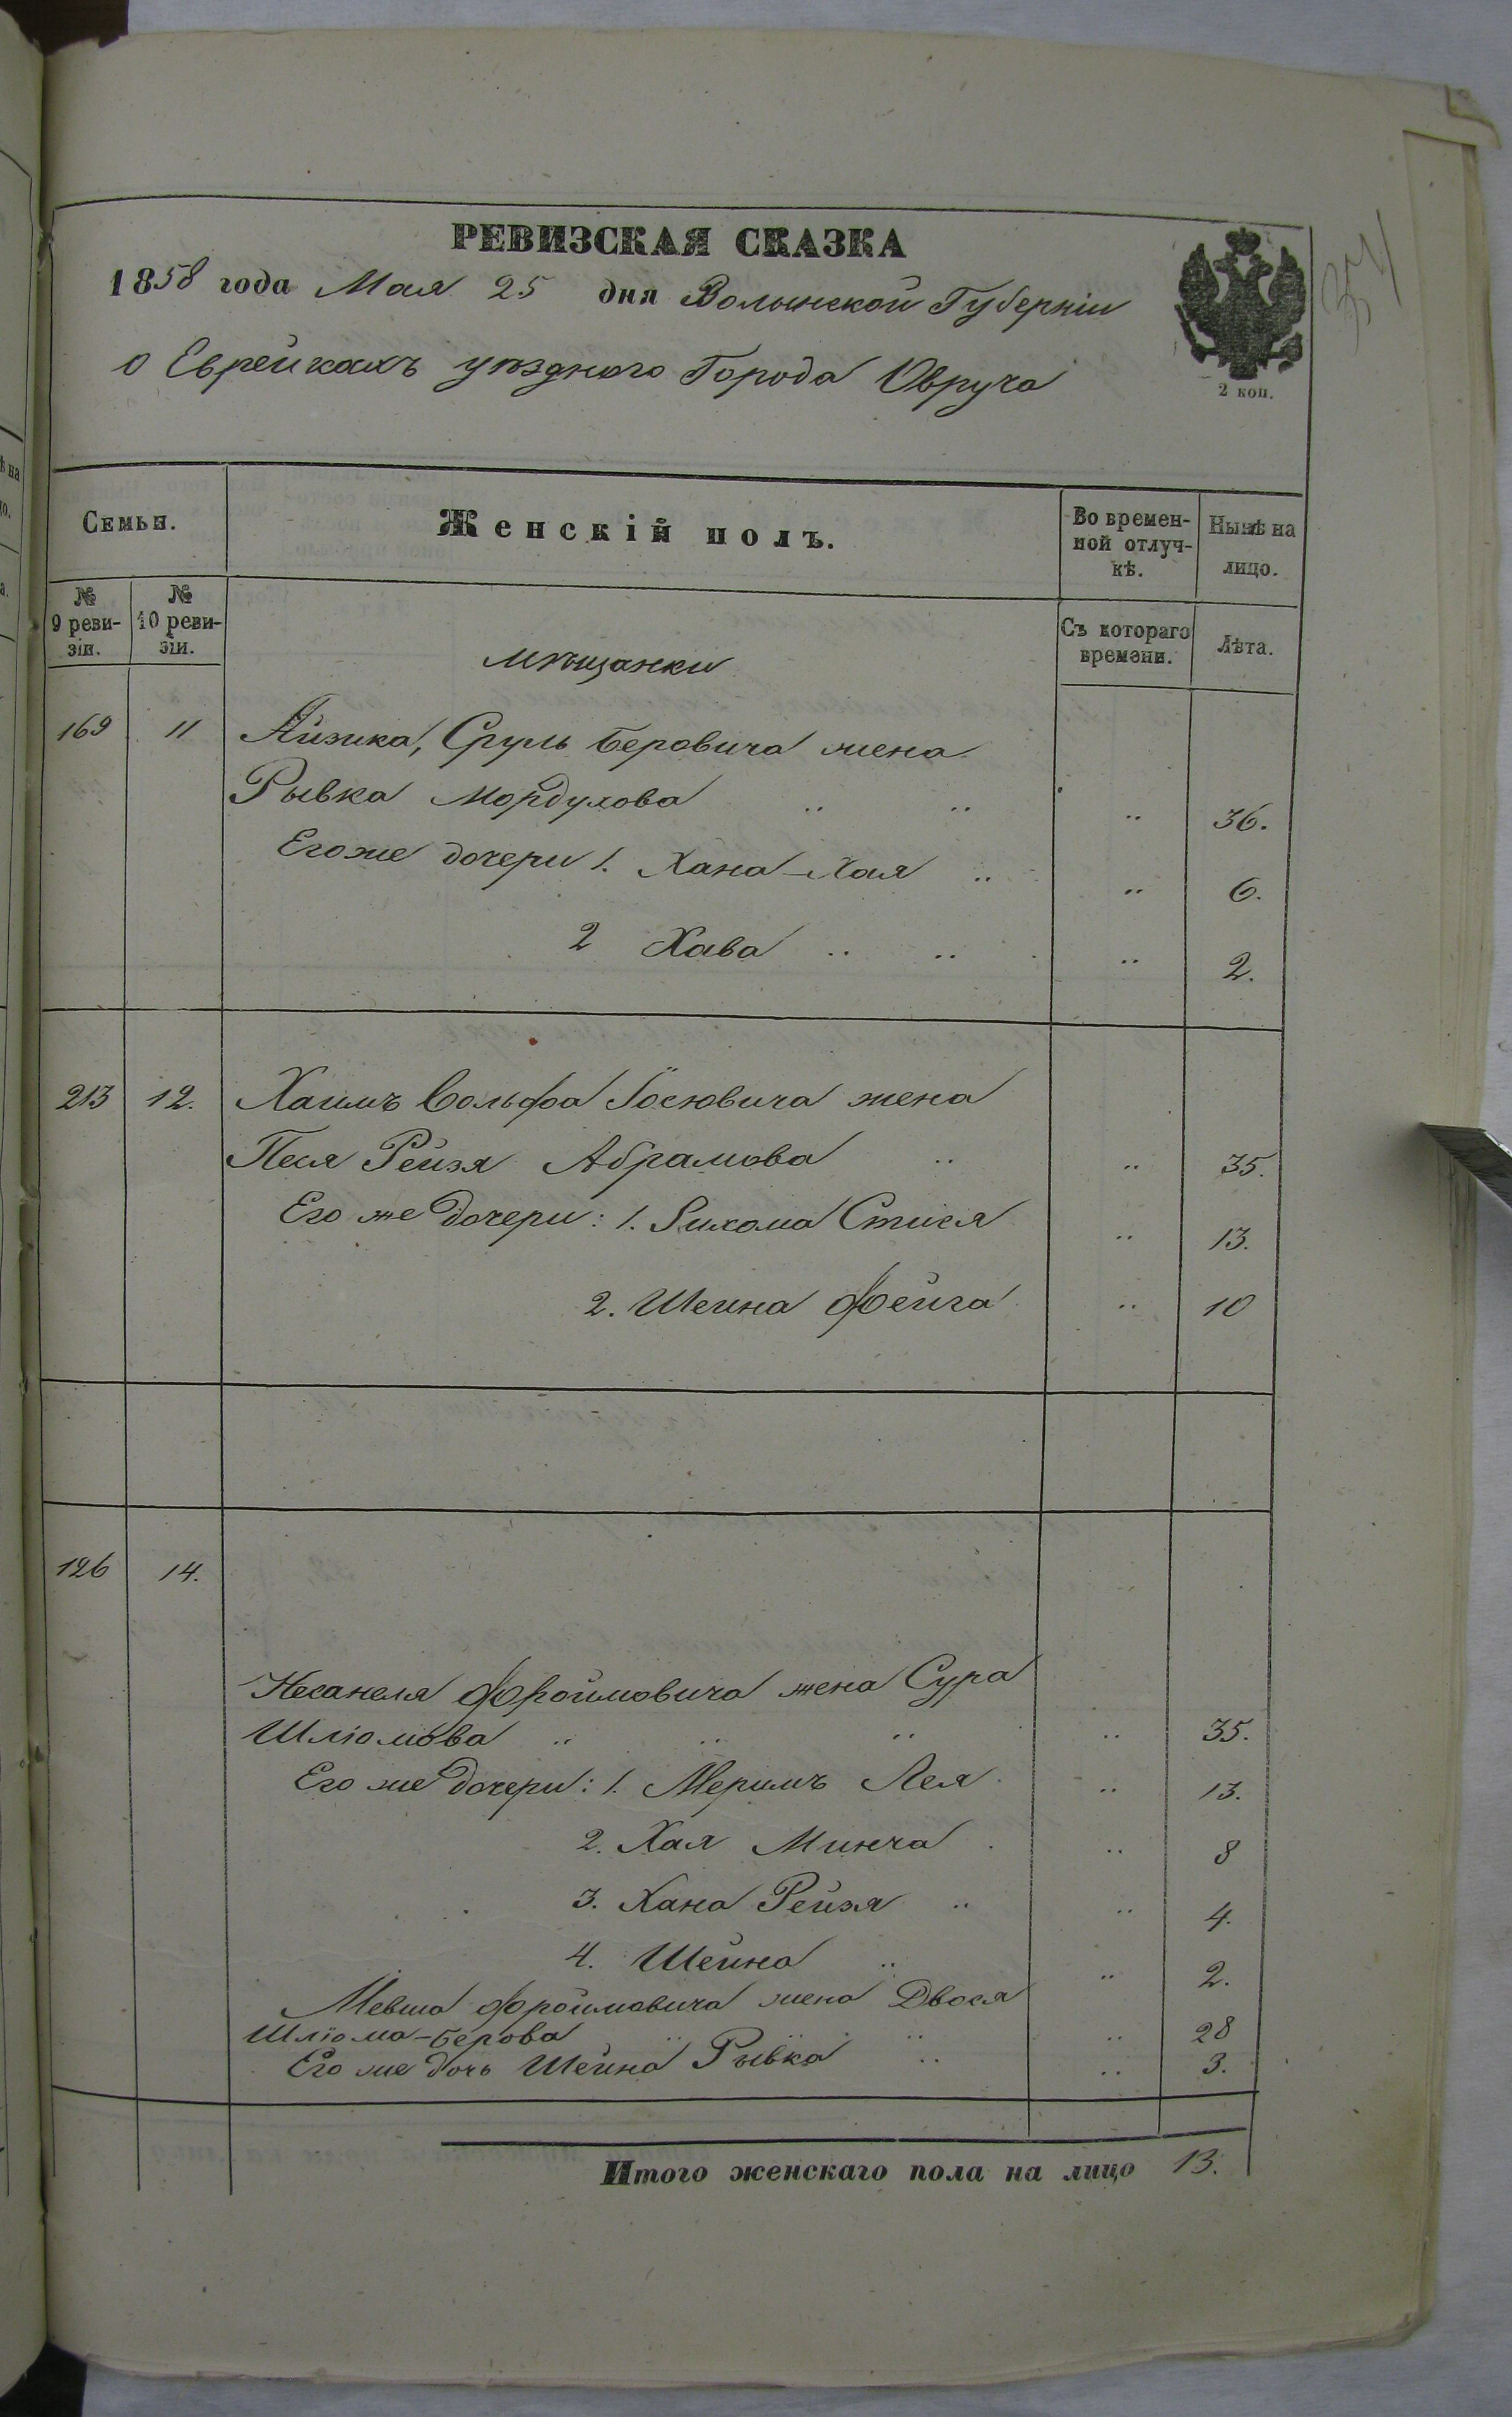 34
РЕВИЗСКАЯ СКАЗКА
1858 года Мая 25 дня Волынской Губерніи
о Еврейкахъ уѣзднаго Города Овруча
2 коп.
Семьи. Женскій полъ. Во времен-ной отлуч-кѣ. Нынѣ на лицо.
№ 9 реви-зіи. № 10 реви-зіи. Съ котораго времени. Лѣта.
Мѣщанки
169 11 Айзика, Сруль Беровича жена
Рывка Мордухова " 36.
Его же дочери 1. Хана-Хая " 6.
2 Хава " 2.
213 12. Хаимъ Вольфа Іосіовича жена
Песя Рейзя Абрамова " 35.
Его же дочери: 1. " 13.
2. Шейна Фейга " 10
126 14.
Несанеля Фроимовича жена Сура
Шліомова " 35.
Его же дочери: 1. Меримъ Лея " 13.
2. Хая Минча " 8
3. Хана Рейзя " 4.
4. Шейна " 2.
Мевша Фроимовича жена Двося
Шліома-Берова " 28
Его же дочь Шейна Рывка " 3.
Итого женскаго пола на лицо 13.